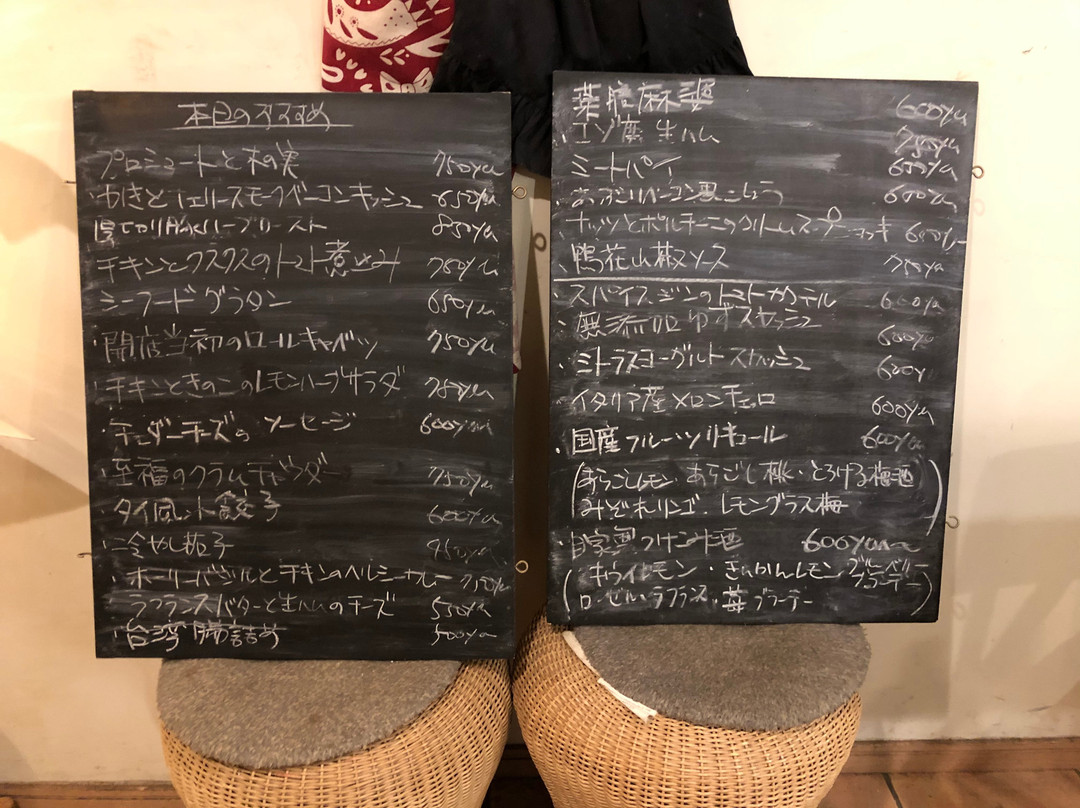 本日のオススメ
プロシュートと木の実 750yen
かきと スモークベーコンキッシュ 650yen
厚切り豚 ハーブロースト 850yen
チキンとクスクスのトマト煮込み 780yen
シーフードグラタン 650yen
・開店当初のロールキャベツ 750yen
・チキンときのこのレモンハーブサラダ 780yen
・チェダーチーズの ソーセージ 600yen
・至福のクラムチャウダー 750yen
・タイ風 餃子 600yen
・冷やし茄子 450yen
・ホーリーバジルとチキンのヘルシーカレー 750yen
・ラフランスバターと生ハムのチーズ 550yen
・台湾腸詰め 500yen
薬膳麻婆 600yen
・エゾ鹿生ハム 750yen
・ミートパイ 650yen
・あぶりベーコン黒こしょう 600yen
・ナッツとポルチーニの 600
・鴨花山椒ソース 750yen
・スパイスジンのトマトカクテル 600yen
・無添加ゆずスカッシュ 600yen
・シトラスヨーグルトスカッシュ 600y
・イタリア産メロンチェッロ 600yen
・国産フルーツリキュール 600yen
(あらごしレモン・あらごし桃・とろける梅酒
みぞれリンゴ・レモングラス梅)
・自家製つけこみ酒 600yen
(キウイレモン・きんかんレモン ブルーベリーブランデー
ローゼル・ラフランス・苺ブランデー)